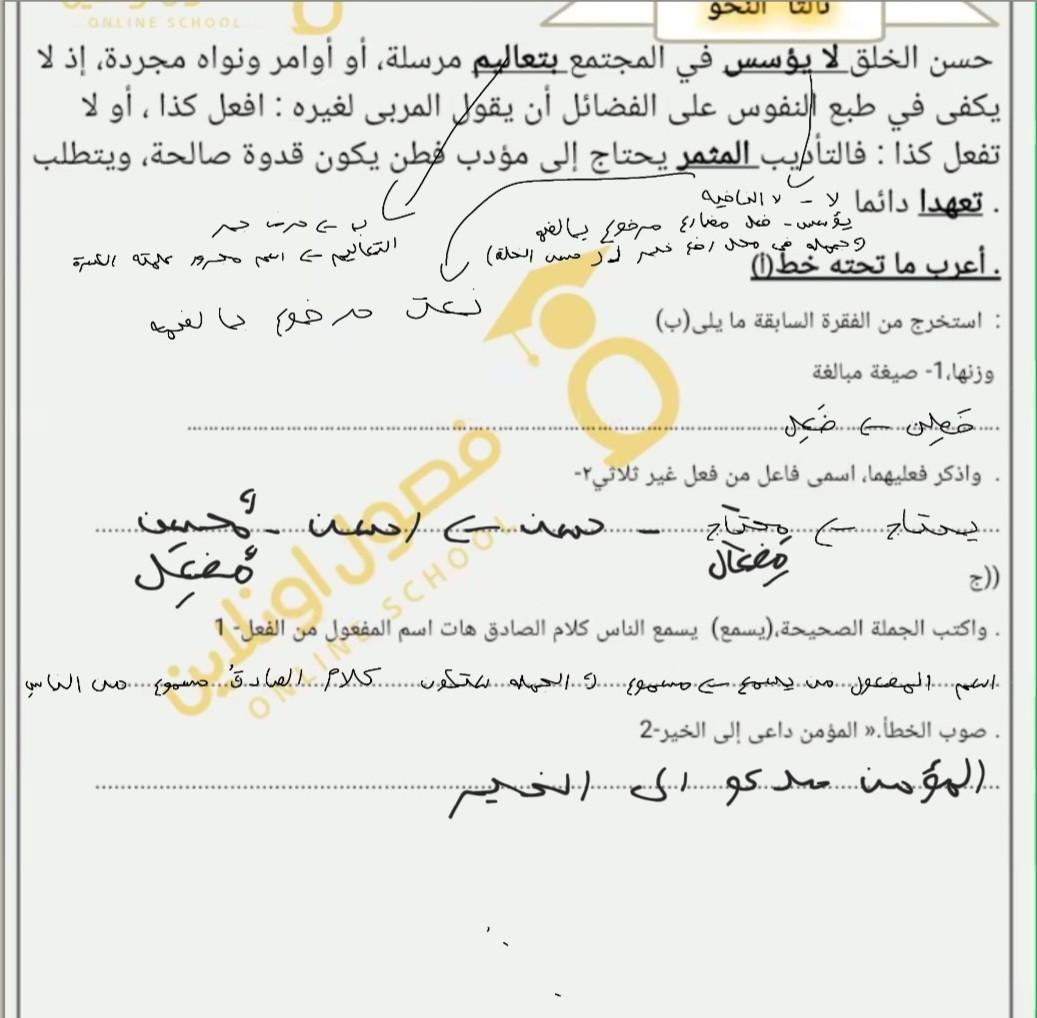 ONLINE SCHOOL
ثالثا النحو
حسن الخلق لا يؤسس في المجتمع بتعاليم مرسلة، أو أوامر ونواه مجردة، إذ لا
يكفى في طبع النفوس على الفضائل أن يقول المربى لغيره : افعل كذا ، أو لا
تفعل كذا : فالتأديب المثمر يحتاج إلى مؤدب فطن يكون قدوة صالحة، ويتطلب
. تعهدا دائما
لا - لا النافية
يؤسس - فعل مضارع مرفوع بالضمة
ب ← حرف جر
التعاليم ← اسم مجرور علامته الكسرة
. أعرب ما تحته خط(أ)
نعت مرفوع بالضمة
: استخرج من الفقرة السابقة ما يلى(ب)
وزنها،1- صيغة مبالغة
فَطِن ← فَعِل
. واذكر فعليهما، اسمى فاعل من فعل غير ثلاثي٢-
يحتاج ← محتاج - حسن ← احسن - مُحسِن
مِفعَال مُفعِل
((ج
. واكتب الجملة الصحيحة،(يسمع) يسمع الناس كلام الصادق هات اسم المفعول من الفعل- 1
اسم المفعول من يسمع ← مسموع و الجمله ستكون كلام الصادقُ مسموع من الناس
. صوب الخطأ.« المؤمن داعى إلى الخير-2
المؤمن الى الخير
فصول اونلاين
ONLINE SCHOOL